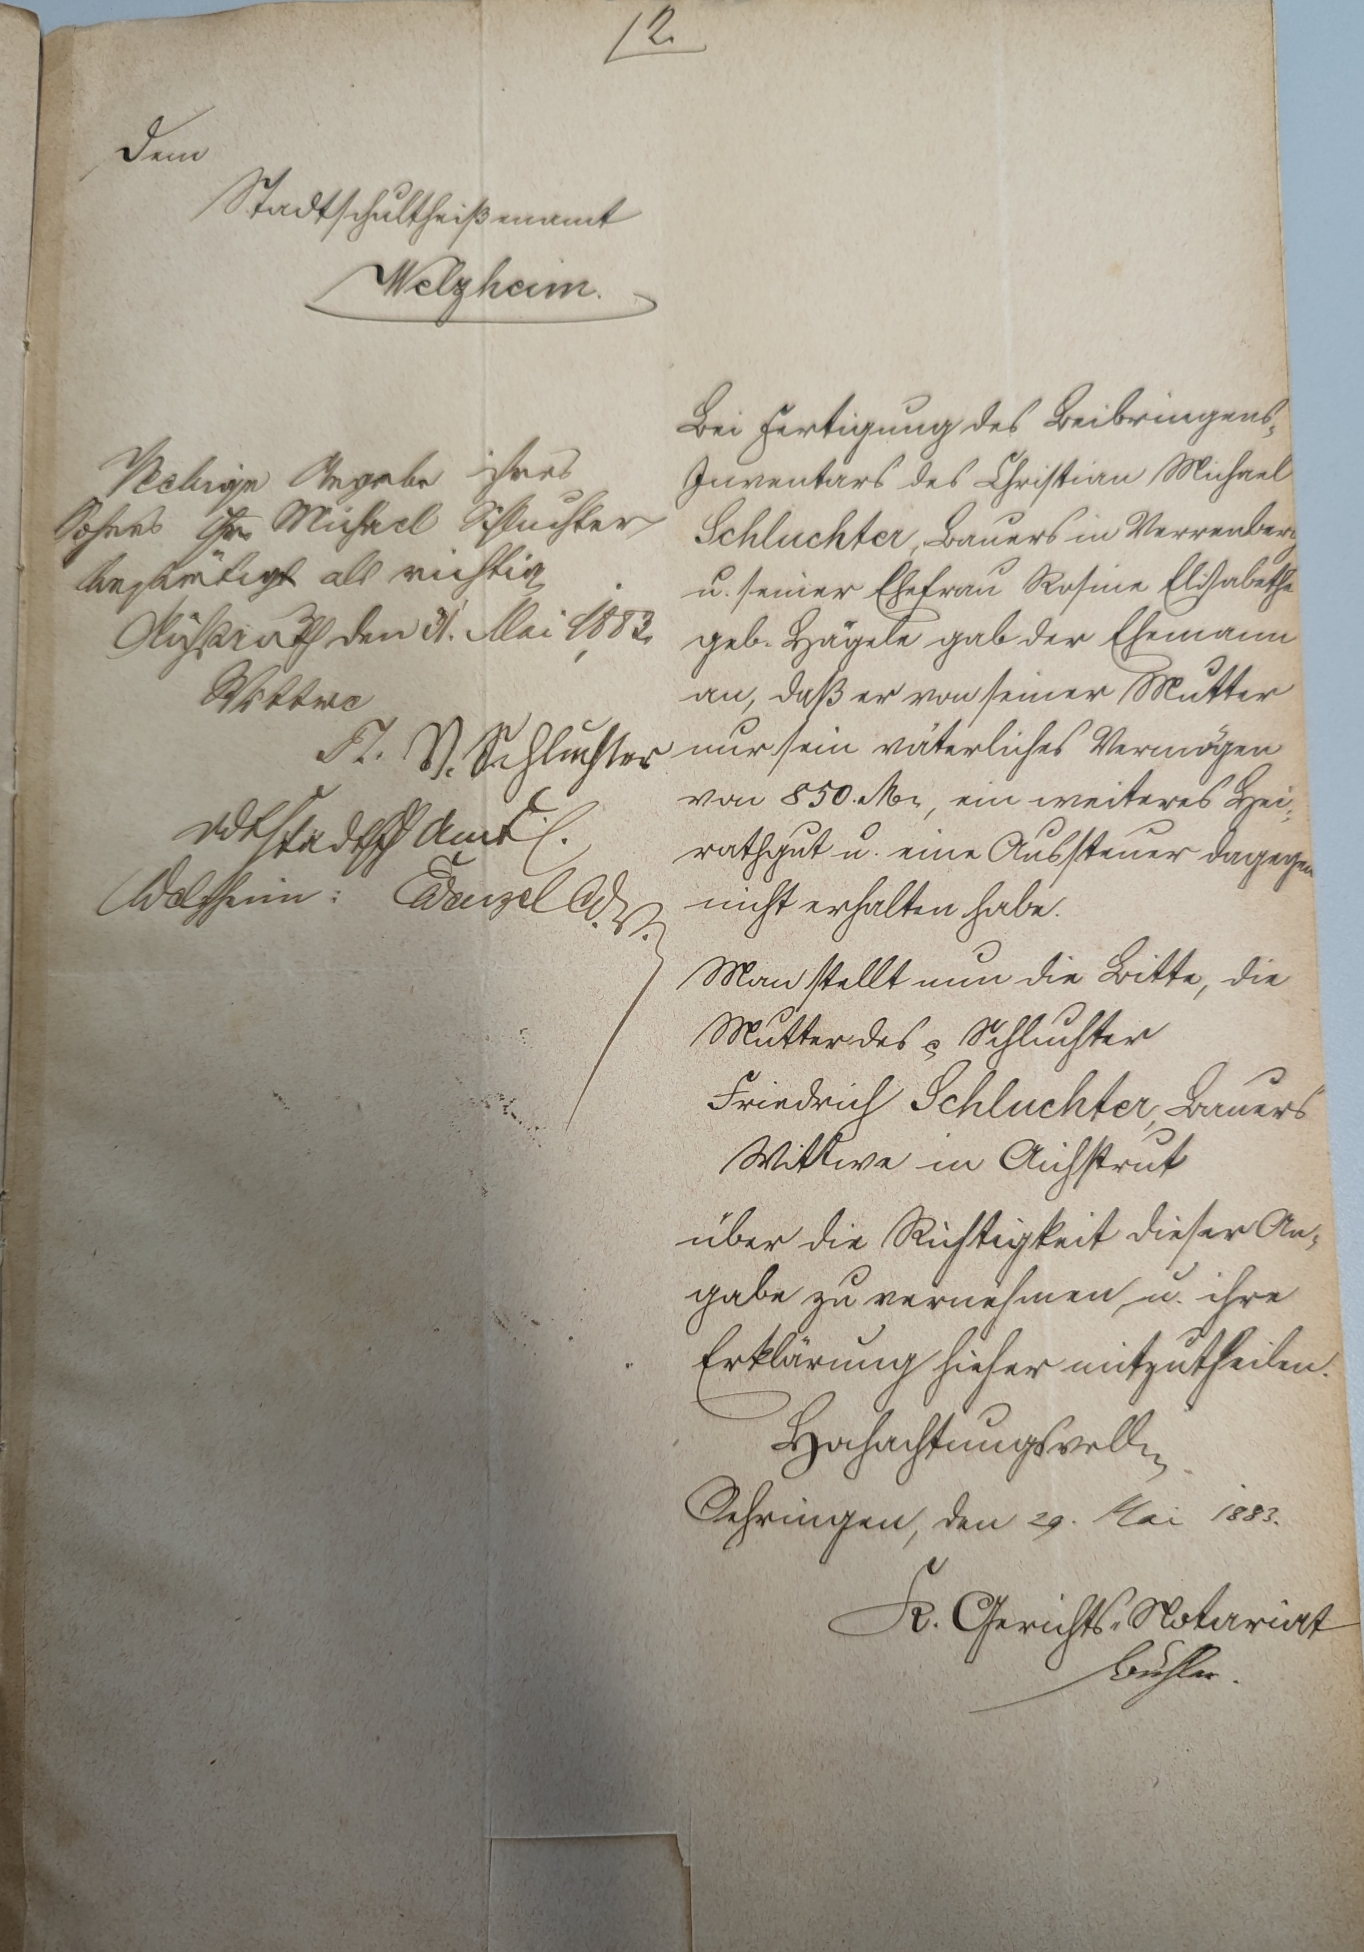 12.
Dem
Stadtschultheißenamt
Welzheim.
Bei Fertigung des Beibringens-
Inventars des Christian Michael
Schluchter, Bauers in Verrenberg
u. seiner Ehefrau Rosine Elisabethe
geb. Hägele gab der Ehemann
an, daß er von seiner Mutter
nur sein väterliches Vermögen
von 850. M., ein weiteres Hei-
rathgut u. eine Aussteuer dagegen
nicht erhalten habe.
Man stellt nun die Bitte, die
Mutter des Schluchter
Friedrich Schluchter, Bauers
Wittwe in Aichstrut
über die Richtigkeit dieser An-
gabe zu vernehmen u. ihre
Erklärung hieher mitzutheilen.
Hochachtungsvoll
Oehringen, den 29. Mai 1883.
K. Gerichts-Notariat
Bühler.
Nebige Angabe ihres
Sohnes Chr. Michael Schluchter
bestätigt als richtig
den 31. Mai 1883.
Wittwe
Fr. Schluchter
Stadtsch Amt
Welzheim: